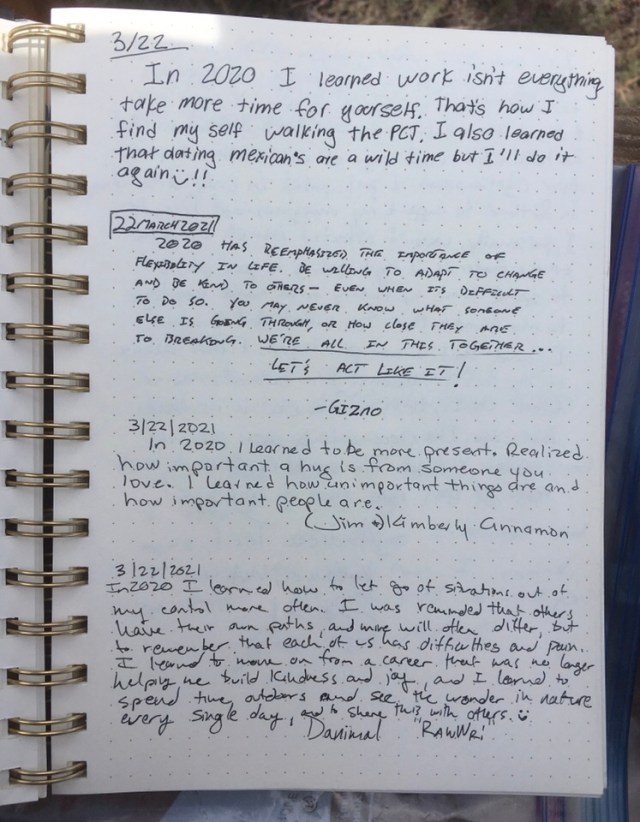 3/22
In 2020 I learned work isn't everything
take more time for yourself. That's how I
find my self walking the PCT. I also learned
that dating mexican's are a wild time but I'll do it
again!!
22 MARCH 2021
2020 HAS REEMPHASIZED THE IMPORTANCE OF
FLEXIBILITY IN LIFE. BE WILLING TO ADAPT TO CHANGE
AND BE KIND TO OTHERS - EVEN WHEN ITS DIFFICULT
TO DO SO. YOU MAY NEVER KNOW WHAT SOMEONE
ELSE IS GOING THROUGH, OR HOW CLOSE THEY ARE
TO BREAKING. WE'RE ALL IN THIS TOGETHER...
LET'S ACT LIKE IT!
-GIZMO
3/22/2021
In 2020 I learned to be more present. Realized
how important a hug is from someone you
love. I learned how unimportant things are and
how important people are.
(Jim +) Kimberly Cinnamon
3/22/2021
In 2020 I learned how to let go of situations out of
my control more often. I was reminded that others
have their own paths, and more will often differ, but
to remember that each of us has difficulties and pain.
I learned to move on from a career that was no longer
helping me build kindness and joy, and I learned to
spend time outdoors and see the wonder in nature
every single day, and to share this with others.
Danimal "RAWWR!"